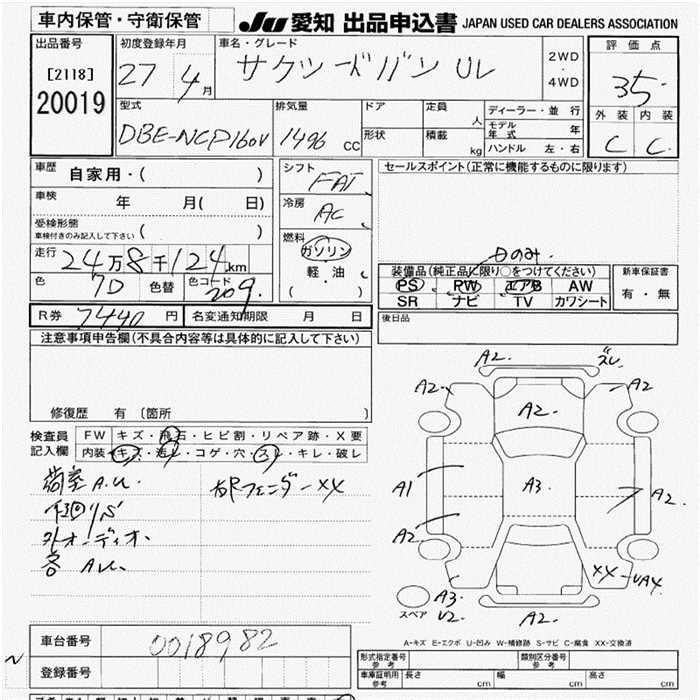 車内保管・守衛保管
JU 愛知 出品申込書 JAPAN USED CAR DEALERS ASSOCIATION
出品番号
[2118]
20019
初度登録年月
27 4月
車名・グレード
サクシードバン UL
2WD
・
4WD
評価点
35
外装 内装
C C
型式
DBE-NCP160V
排気量
1496 CC
ドア
形状
定員
人
積載
kg
ディーラー・並行
モデル年式 年
ハンドル 左・右
車歴
自家用・( )
車検
年 月( 日)
受検形態
車検付きのみ記入して下さい ( )
走行
24万8千124km
色
7D
色替
色コード
209
シフト
FAT
冷房
AC
燃料
ガソリン
軽・油
( )
セールスポイント(正常に機能するものに限ります)
Dのみ.
装備品(純正品に限り○をつけてください)
PS PW エアB AW
SR ナビ TV カワシート
新車保証書
有・無
R券 7440 円
名変通知期限 月 日
後日品
注意事項申告欄(不具合内容等は具体的に記入して下さい)
修復歴 有〔箇所 〕
検査員
記入欄
FW キズ・飛石・ヒビ割・リペア跡・X要
内装 キズ・汚レ・コゲ・穴・スレ・キレ・破レ
荷室A.U.
右Rフェンダー XX
外オーディオ.
A2. ズレ.
A2. A2
A2.
A1 A3 A2.
A2.
XX UA4
A3
U2
A2.
スペア
A-キズ E-エクボ U-凹み W-補修跡 S-サビ C-腐食 XX-交換済
車台番号
0018982
登録番号
形式指定番号
参考
類別区分番号
参考
車庫証明用
参考
長さ cm 幅 cm 高さ cm